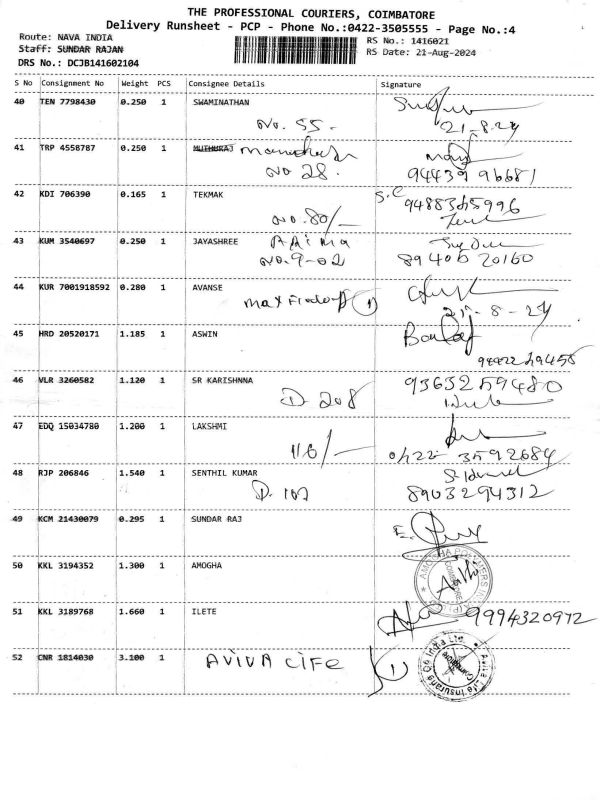 THE PROFESSIONAL COURIERS, COIMBATORE
Delivery Runsheet - PCP - Phone No.:0422-3505555 - Page No.:4
Route: NAVA INDIA
RS No.: 1416021
Staff: SUNDAR RAJAN
RS Date: 21-Aug-2024
DRS No.: DCJB141602104
S No Consignment No Weight PCS Consignee Details Signature
40 TEN 7798430 0.250 1 SWAMINATHAN
No. 55. 21-8-24
41 TRP 4558787 0.250 1 MUTHURAJ
No 28. 94439 96681
42 KDI 706390 0.165 1 TEKMAK S.C 9488365996
No.80/-
43 KUM 3540697 0.250 1 JAYASHREE
No.9-02 89406 20160
44 KUR 7001918592 0.280 1 AVANSE
1 21-8-24
45 HRD 20520171 1.185 1 ASWIN
46 VLR 3260582 1.120 1 SR KARISHNNA 9363259480
D. 208
47 EDQ 15034780 1.200 1 LAKSHMI
116/- 0422- 3592684
48 RJP 206846 1.540 1 SENTHIL KUMAR
D. 102 8903294312
49 KCM 21430079 0.295 1 SUNDAR RAJ
50 KKL 3194352 1.300 1 AMOGHA
AMOGHA POLYMERS COIMBATORE
51 KKL 3189768 1.660 1 ILETE 9994320972
52 CNR 1814030 3.100 1 AVIVA LIFE 1
Aviva Life Insurance Co India Ltd